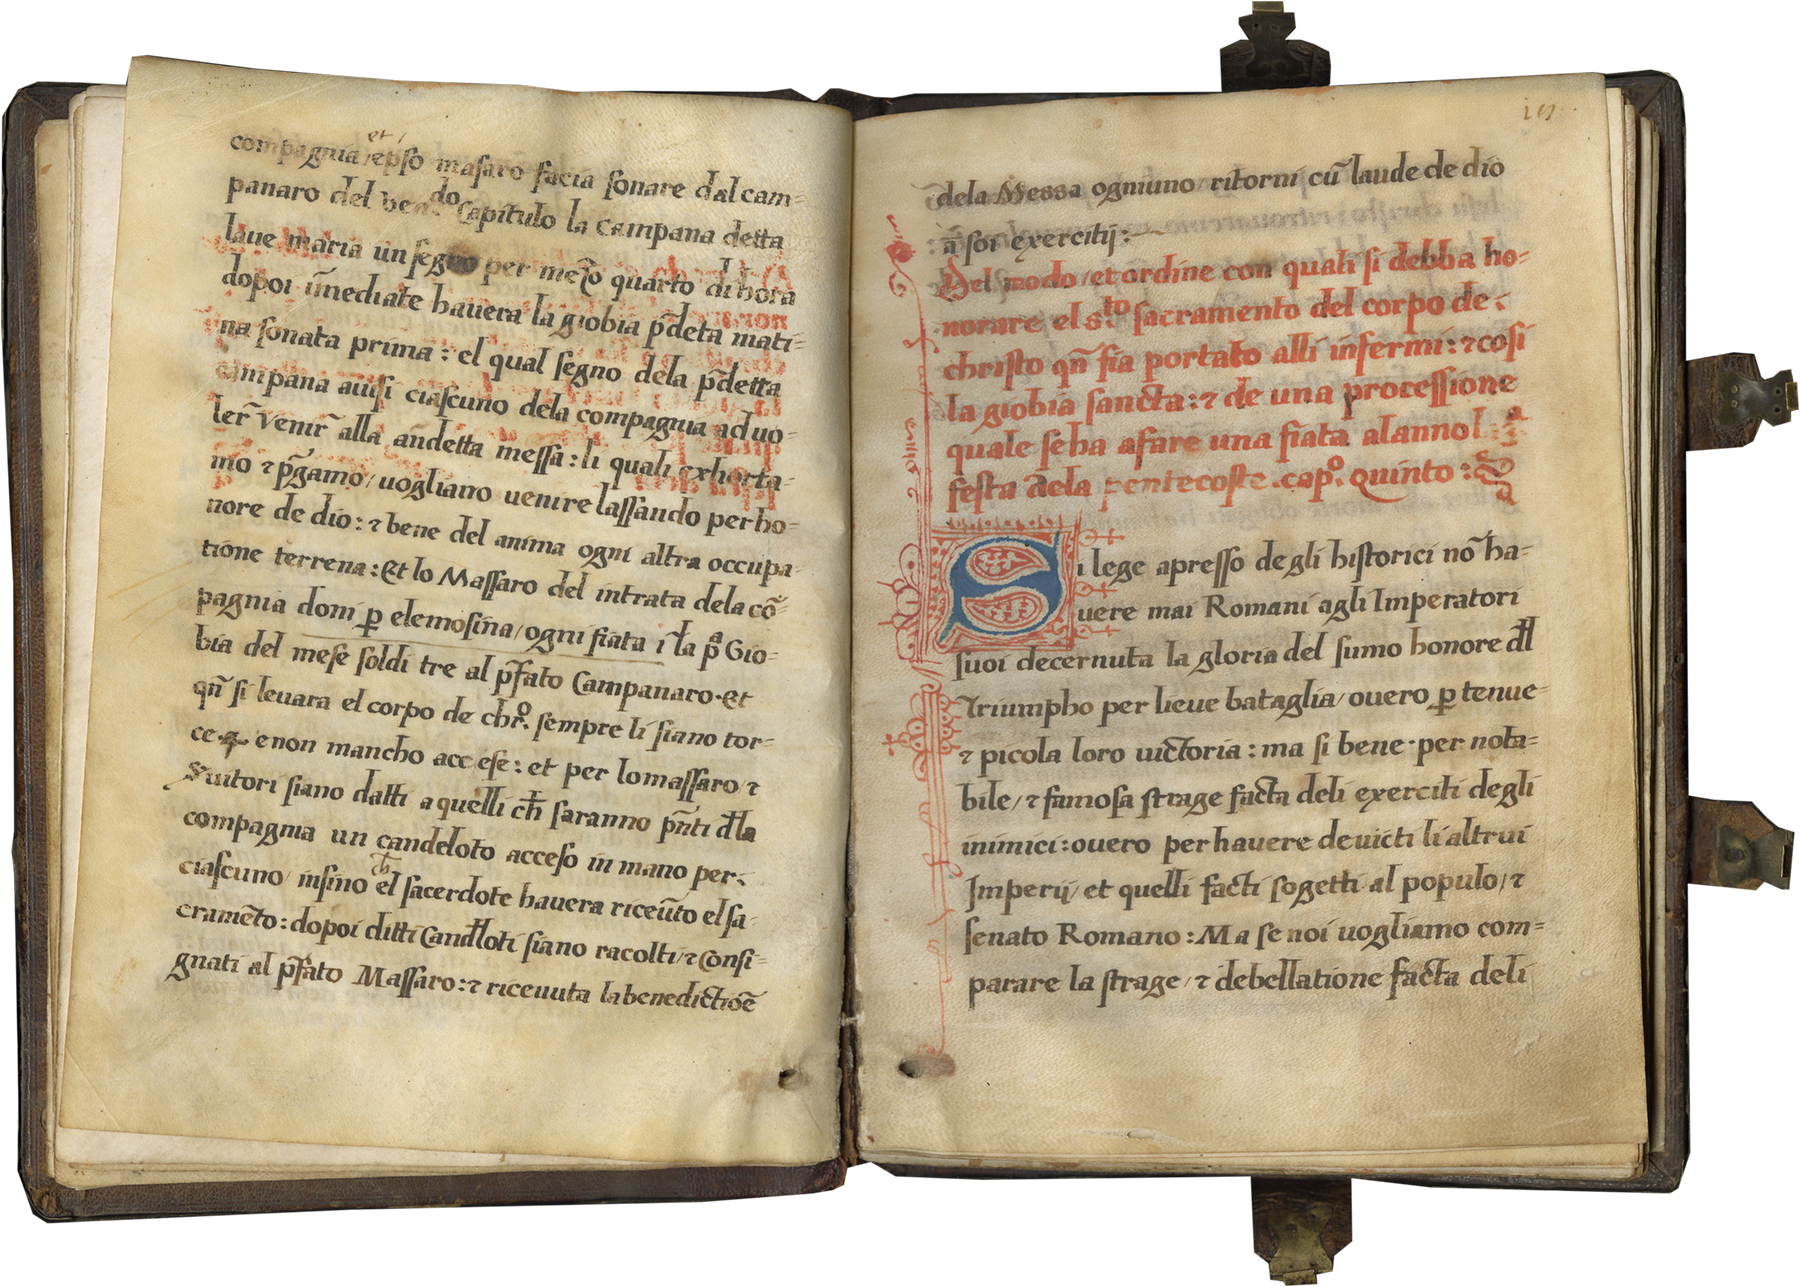 compagnia /et p̄so masaro facia sonare dal cam-
panaro del ven.do Capitulo la campana detta
laue maria un segno per mezo quarto di hora
dopoi īmediate hauera la giobia p̄deta mati-
na sonata prima: el qual segno dela p̄detta
campana auisi ciascuno dela compagnia ad uo-
ler̄ venir̄ alla andetta messa: li quali exhorta-
mo ⁊ p̄gamo/ uogliano uenire lassando per ho-
nore de dio: ⁊ bene del anima ogni altra occupa-
tione terrena: Et lo Massaro del intrata dela cō-
pagnia doni ꝑ elemosina/ ogni fiata ī la pa Gio-
bia del mese soldi tre al p̄fato Campanaro. Et
qn̄ si leuara el corpo de chro. sempre li siano tor-
ce e non mancho accese: et per lo massaro/ ⁊
Suitori siano datti a quelli ch̄ saranno p̄nti dl̄a
compagnia un candeloto acceso in mano per:
ciascuno/ insino ch̄ el sacerdote hauera riceuto el sa-
cramēto: dopoi ditti Candl̄oti siano racolti/ ⁊ consi-
gnati al p̄fato Massaro: ⁊ riceuuta la benedictiōe
dela Messa ogniuno ritorni cū laude de dio
a soi exercitij:
Del modo/ et ordine con quali si debba ho-
norare el sto sacramento del corpo de:
christo qn̄ sia portato alli infermi: ⁊ cosi
la giobia sancta: ⁊ de una processione
quale se ha a fare una fiata al anno l
festa dela pentecoste. capo. quinto:
Si lege apresso degli historici nō ha-
uere mai Romani agli Imperatori
suoi decernuta la gloria del sumo honore dl̄
Triumpho per lieue bataglia/ ouero ꝑ tenue-
⁊ picola loro uictoria: ma si bene per nota-
bile/ ⁊ famosa strage facta deli exerciti degli
inimici: ouero per hauere deuicti li altrui
Imperij/ et quelli facti sogetti al populo/ ⁊
senato Romano: Ma se noi uogliamo com-
parare la strage/ ⁊ debellatione facta deli